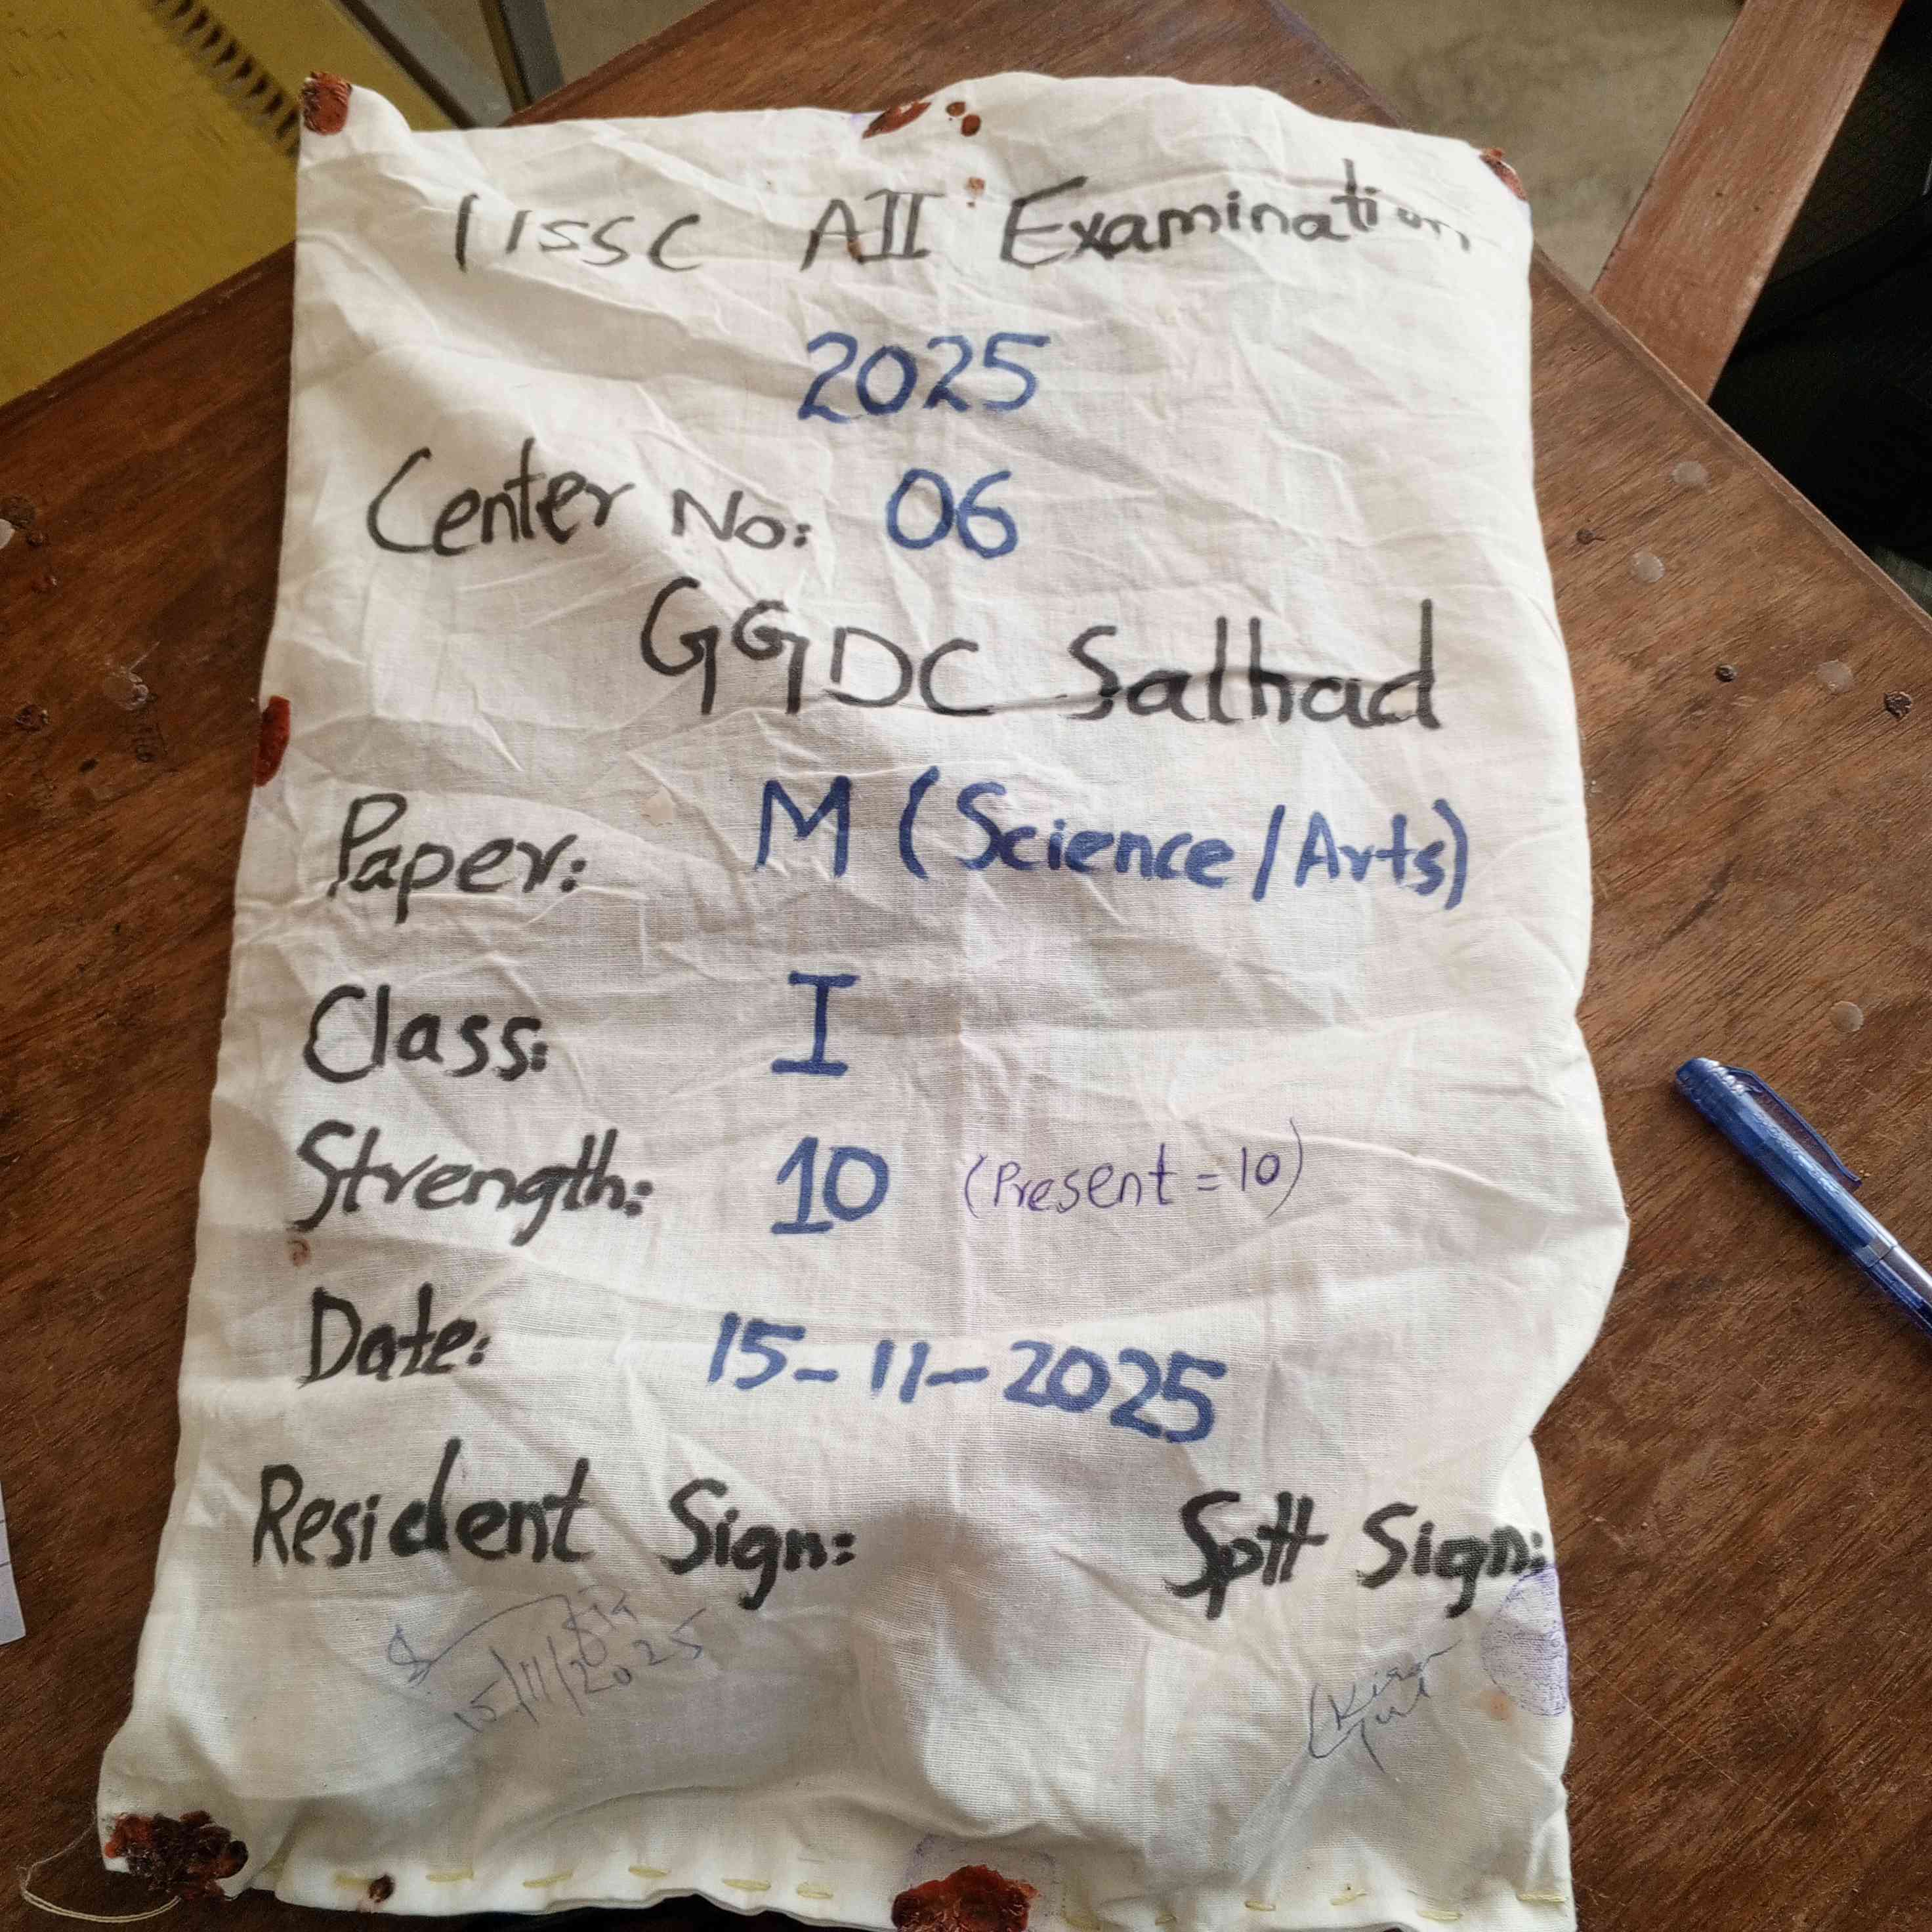 HSSC AII Examination
2025
Center No: 06
GGDC Salhad
Paper: M (Science/Arts)
Class: I
Strength: 10 (Present = 10)
Date: 15-11-2025
Resident Sign: Sptt Sign:
15/11/2025
(Kiran
Gul